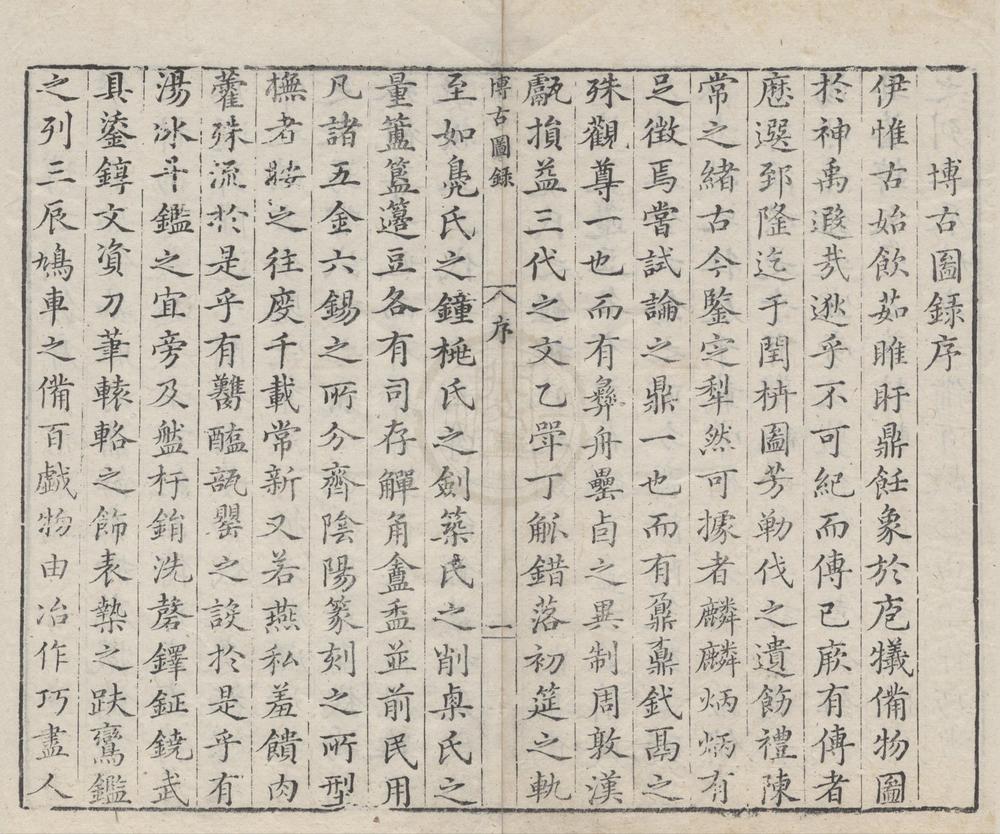 博古圖錄序
伊惟古始飲茹睢盱鼎飪象於庖犧備物圖
於神禹遐哉逖乎不可紀而傳已厥有傳者
歷選郅隆迄于閏枿圖芳勒伐之遺飭禮陳
常之緒古今鑒定犁然可據者麟麟炳炳有
足徵焉嘗試論之鼎一也而有鼐鼒釴鬲之
殊觀尊一也而有彝舟罍卣之異制周敦漢
甗損益三代之文乙斝丁觚錯落初筵之軌
博古圖錄 序 一
至如鳧氏之鐘桃氏之劍築氏之削㮚氏之
量簠簋籩豆各有司存觶角盦盉並前民用
凡諸五金六錫之所分齊陰陽篆刻之所型
橅者按之往度千載常新又若燕私羞饋肉
藿殊流於是乎有鑴䀋瓿罌之設於是乎有
湯冰斗鑑之宜旁及盤杅鋗洗磬鐸鉦鐃武
具鍌錞文資刀筆轅輅之飾表㙯之趺鸞鑑
之列三辰鳩車之備百戲物由冶作巧盡人